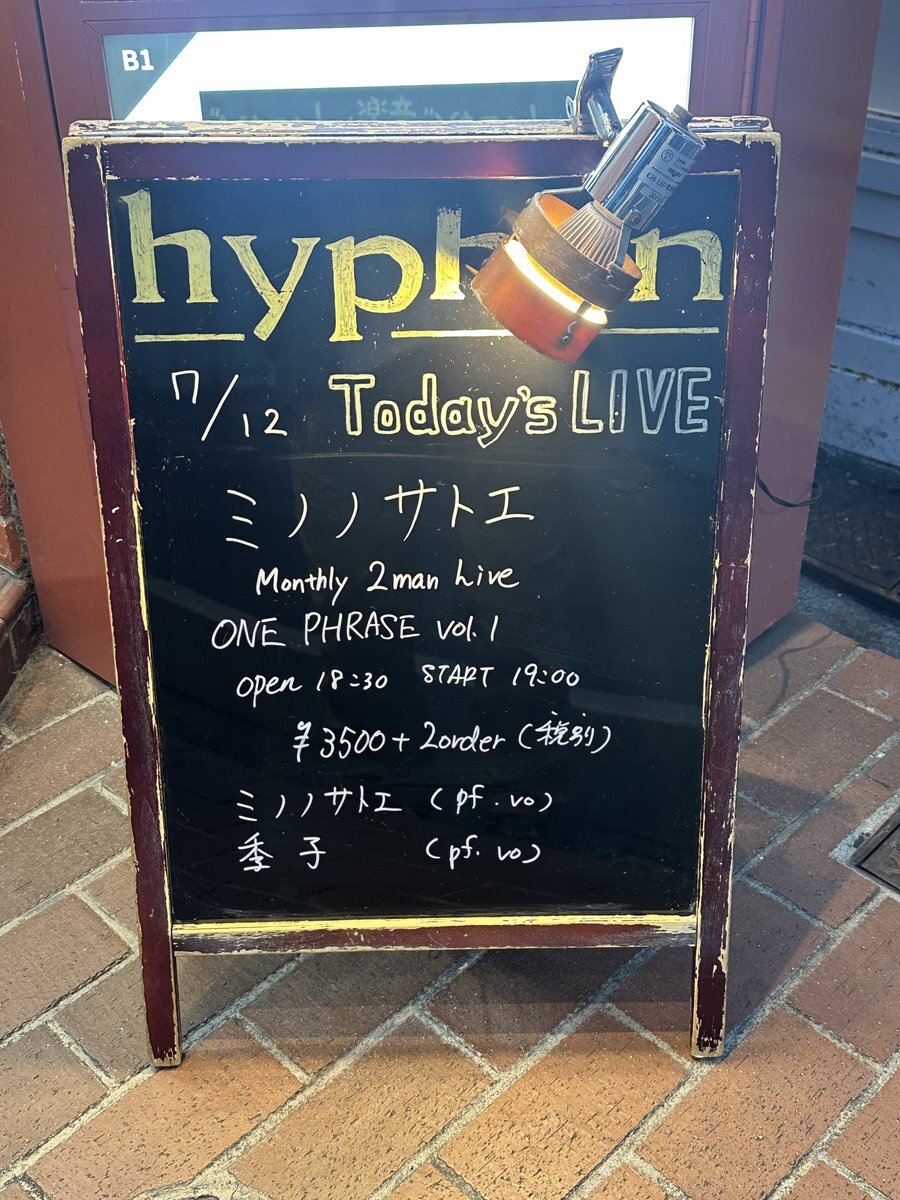 B1
hyphen
7/12 Today's LIVE
ミノノサトエ
Monthly 2man Live
ONE PHRASE vol.1
open 18:30 START 19:00
¥3500+2order(税別)
ミノノサトエ (pf.vo)
季子 (pf.vo)